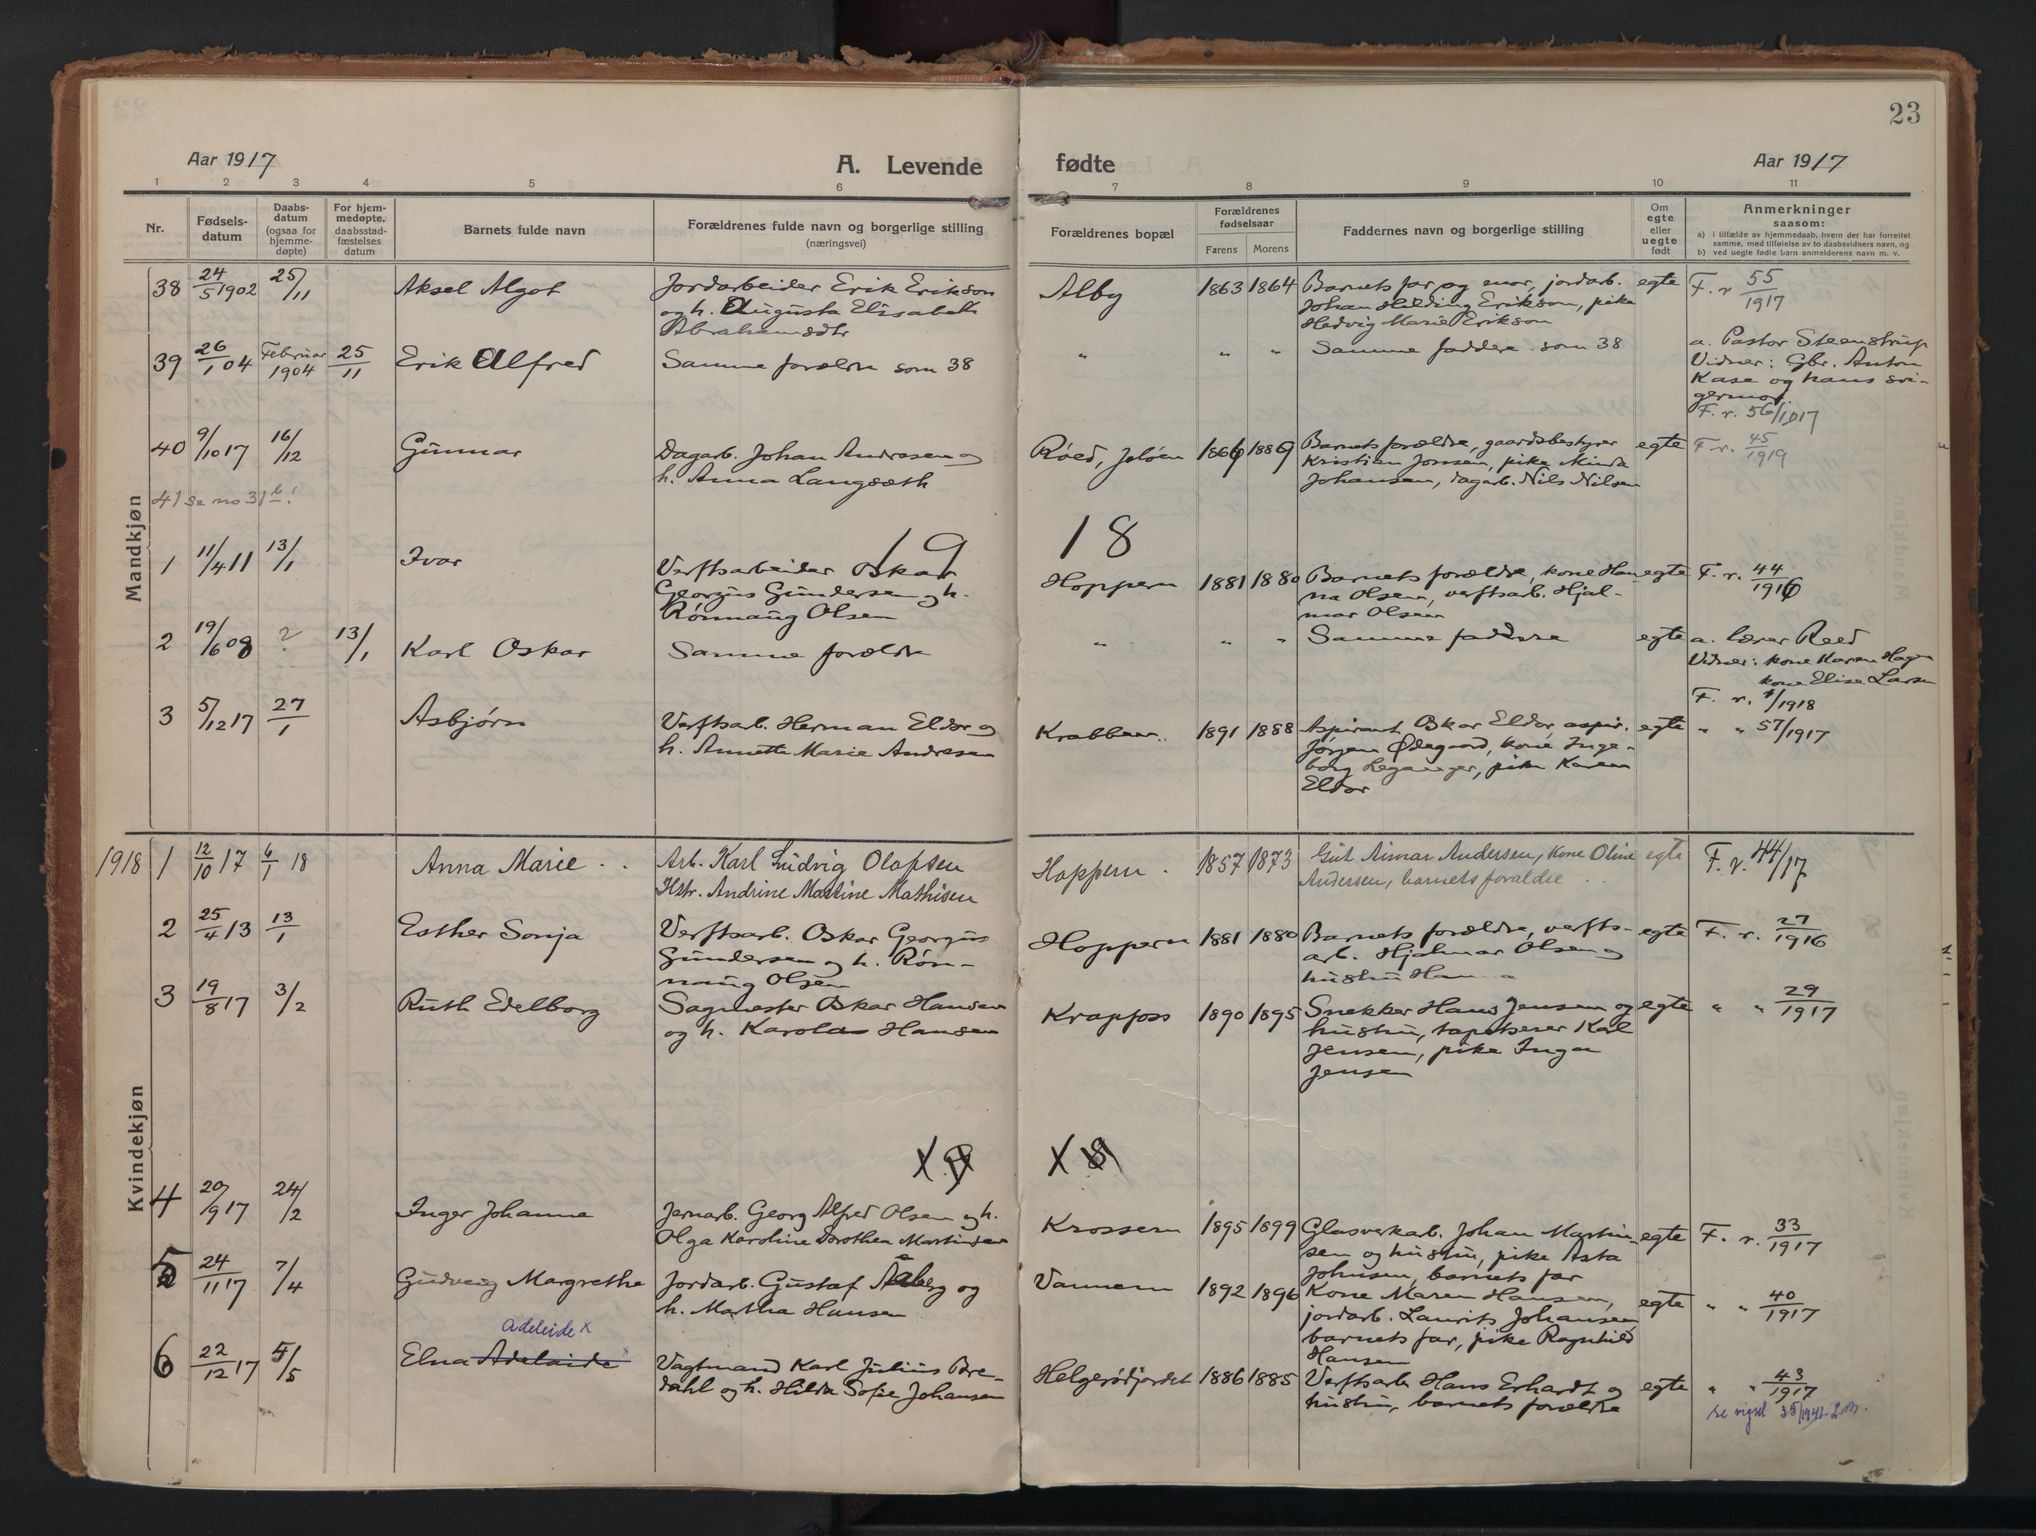 23
Aar 1917
A. Levende
fødte
Aar 1917
1 2 3 4 5 6 7 8 9 10 11
Nr.
Fødsels-
datum
Daabs-
datum
(ogsaa for
hjemme-
døpte)
For hjem-
medøpte,
daabsstad-
fæstelses
datum
Barnets fulde navn
Forældrenes fulde navn og borgerlige stilling
(næringsvei)
Forældrenes bopæl
Forældrenes
fødselsaar
Farens Morens
Faddernes navn og borgerlige stilling
Om
egte
eller
uegte
født
Anmerkninger
saasom:
a) I tilfælde av hjemmedaab, hvem der har forrettet
samme, med tilføielse av to daabsvidners navn, og
b) ved uegte fødte barn anmelderens navn m. v.
Mandkjøn
38 24/5 1902 25/11 Aksel Algot
Jordarbeider Erik Erikson
og h. Augusta Elisabeth
Abrahamsdtr
Alby 1863 1864
Barnets far og mor, jordarb.
Johan Hilding Erikson, pike
Hedvig Marie Erikson
egte F. r. 55/1917
39 26/1 04 Februar 1904 25/11 Erik Alfred
Samme forældre som 38
" " " Samme faddere som 38
a. Pastor Steenstrup
Vidner: Gbr. Anton
Kase og hans svi-
germor.
F. r. 56/1917
40 9/10 17 16/12 Gunnar
Dagarb. Johan Andresen og
h. Anna Langsæth
Røed, Jeløen 1866 1889
Barnets forældre, gaardsbestyrer
Kristian Jonsen, pike Minda
Johansen, dagarb. Nils Nilsen
egte F. r. 45/1919
41 se no 31 b!
19 18
1 11/4 11 13/1 Ivar
Verftsarbeider Oskar
Georgius Gundersen og h.
Rønnaug Olsen
Hoppern 1881 1880
Barnets forældre, kone Han
na Olsen, verftsarb. Hjal-
mar Olsen
egte F. r. 44/1916
2 19/6 08 ? 13/1 Karl Oskar
Samme forældre
" " " Samme faddere egte
a. lærer Reed
Vidner: kone Karen Hagen
kone Elise Larsen
F. r. 1/1918
3 5/12 17 27/1 Asbjørn
Verftsarb. Herman Eldor og
h. Annette Marie Andresen
Krabben.. 1891 1888
Aspirant Oskar Eldor, aspir.
Jørgen Ødegaard, kone Inge-
borg Leganger, pike Karen
Eldor
egte " " 57/1917
Kvindekjøn
1918 1 12/10 17 6/1 18 Anna Marie
Arb. Karl Ludvig Olofsen
Hstr. Andrine Martine Mathisen
Hoppern. 1857 1873
Gut Aimar Andersen, kone Oline
Andersen, barnets forældre.
egte F. r. 44/17
2 25/4 13 13/1 Esther Sonja
Verftsarb. Oskar Georgius
Gundersen og h. Røn-
naug Olsen
Hoppern 1881 1880
Barnets forældre, verfts-
arb. Hjalmar Olsen og
hustru Hanna
egte F. r. 27/1916
3 19/8 17 3/2 Ruth Edelborg
Sagmester Oskar Hansen
og h. Karola Hansen
Krapfoss 1890 1895
Snekker Hans Jensen og
hustru, tapetserer Karl
Jensen, pike Inga
Jensen
egte " " 29/1917
4 20/9 17 24/2 Inger Johanne
Jernarb. Georg Alfred Olsen og h.
Olga Karoline Dorothea Martinsen
Krossern 1895 1899
Glasverkab. Johan Martin-
sen og hustru, pike Asta
Johnsen, barnets far
egte F. r. 33/1917
5 24/11 17 7/4 Gudveig Margrethe
Jordarb. Gustaf Aaberg og
h. Martha Hansen
Vannem 1892 1896
Kone Maren Hansen,
jordarb. Laurits Johansen
barnets far, pike Ragnhild
Hansen
egte " " 40/1917
Adeleide x
6 22/12 17 5/5 Elna Adelaide x
Vagtmand Karl Julius Bre-
dahl og h. Hilda Sofie Johansen
Helgerødjordet 1886 1885
Verftsarb. Hans Erhardt og
hustru, barnets forældre
egte " " 43/1917
se vigsel 35/1941